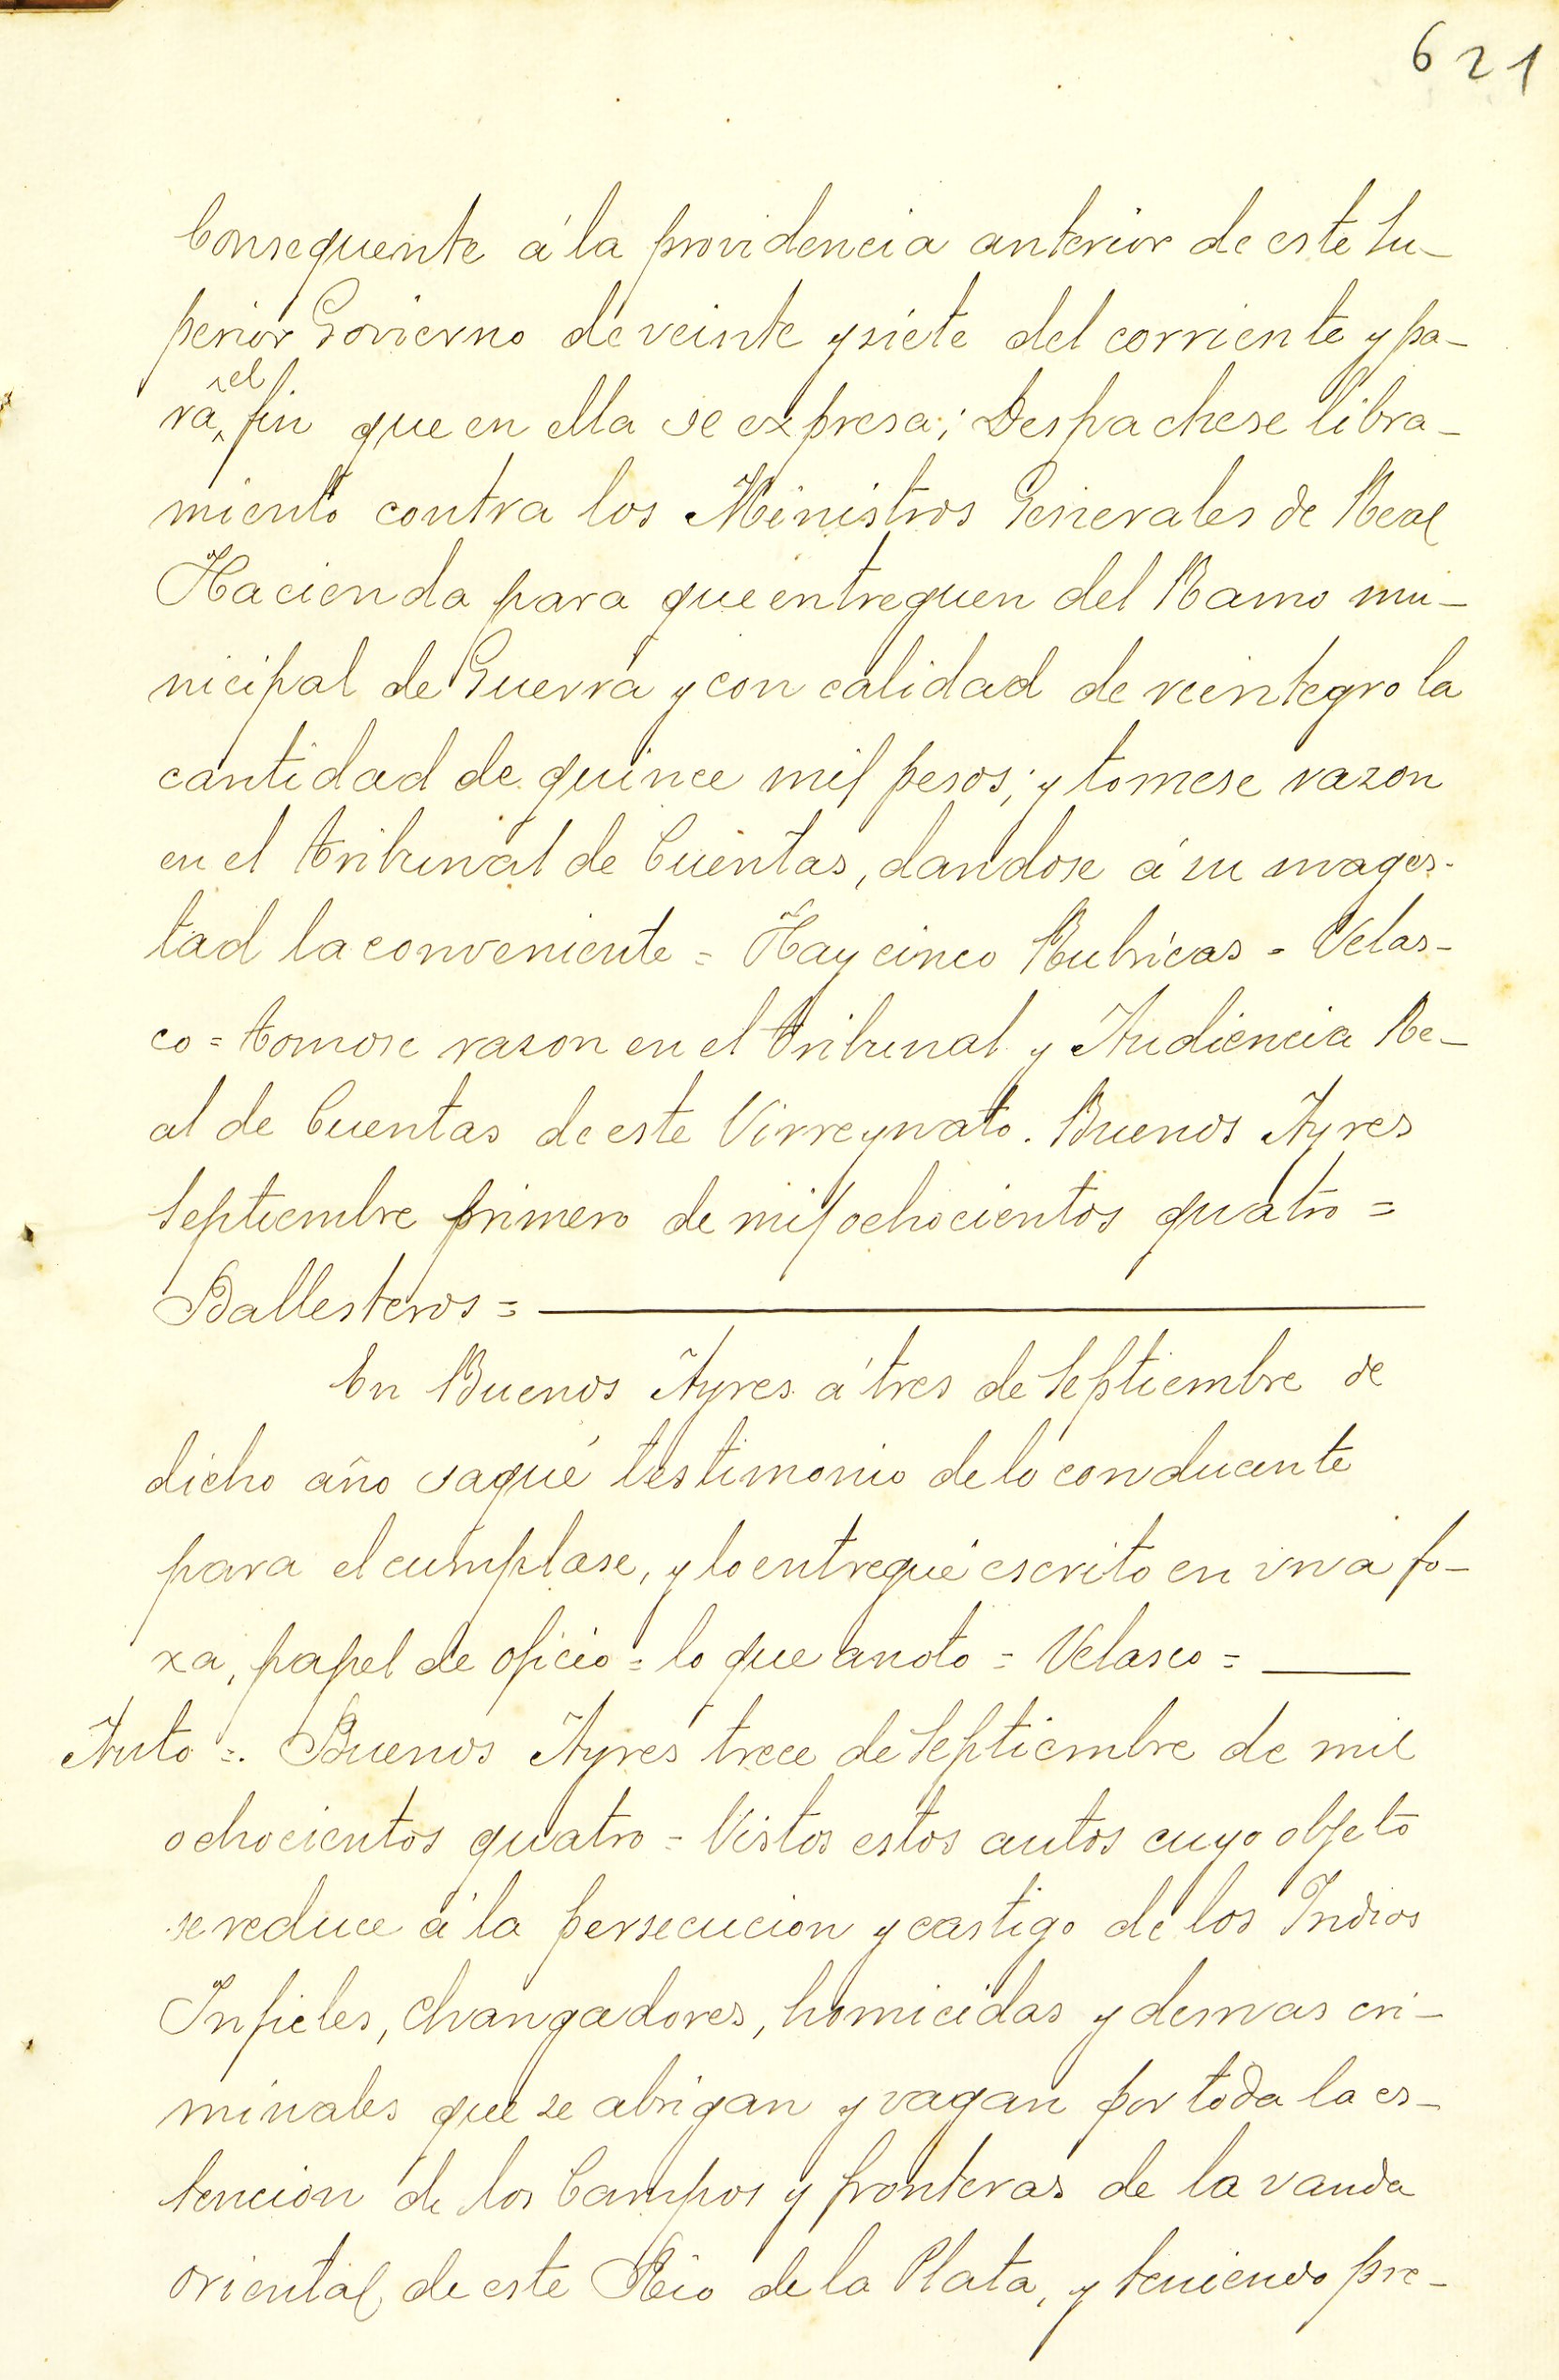 621
Consequente á la providencia anterior de este Su-
perior Govierno de veinte y siete del corriente y pa-
ra el fin que en ella se expresa; Despachese libra-
miento contra los Ministros Generales de Real
Hacienda para que entreguen del Ramo mu-
nicipal de Guerra y con calidad de reintegro la
cantidad de quince mil pesos; y tomese razon
en el tribunal de Cuentas, dandose á su mages-
tad la conveniente = Hay cinco Rubricas = Velas-
co = tomose razon en el tribunal y Audiencia Re-
al de Cuentas de este Virreynato. Buenos Ayres
Septiembre primero de mil ochocientos quatro =
Ballesteros =
En Buenos Ayres á tres de Septiembre de
dicho año saqué testimonio de lo conducente
para el cumplase, y lo entregué escrito en una fo-
xa, papel de oficio = lo que anoto = Velasco =
Auto =. Buenos Ayres trece de Septiembre de mil
ochocientos quatro = Vistos estos autos cuyo objeto
se reduce á la persecucion y castigo de los Indios
Infieles, Changadores, homicidas y demas cri-
minales que se abrigan y vagan por toda la es-
tencion de los Campos y fronteras de la vanda
oriental de este Rio de la Plata, y teniendo pre-